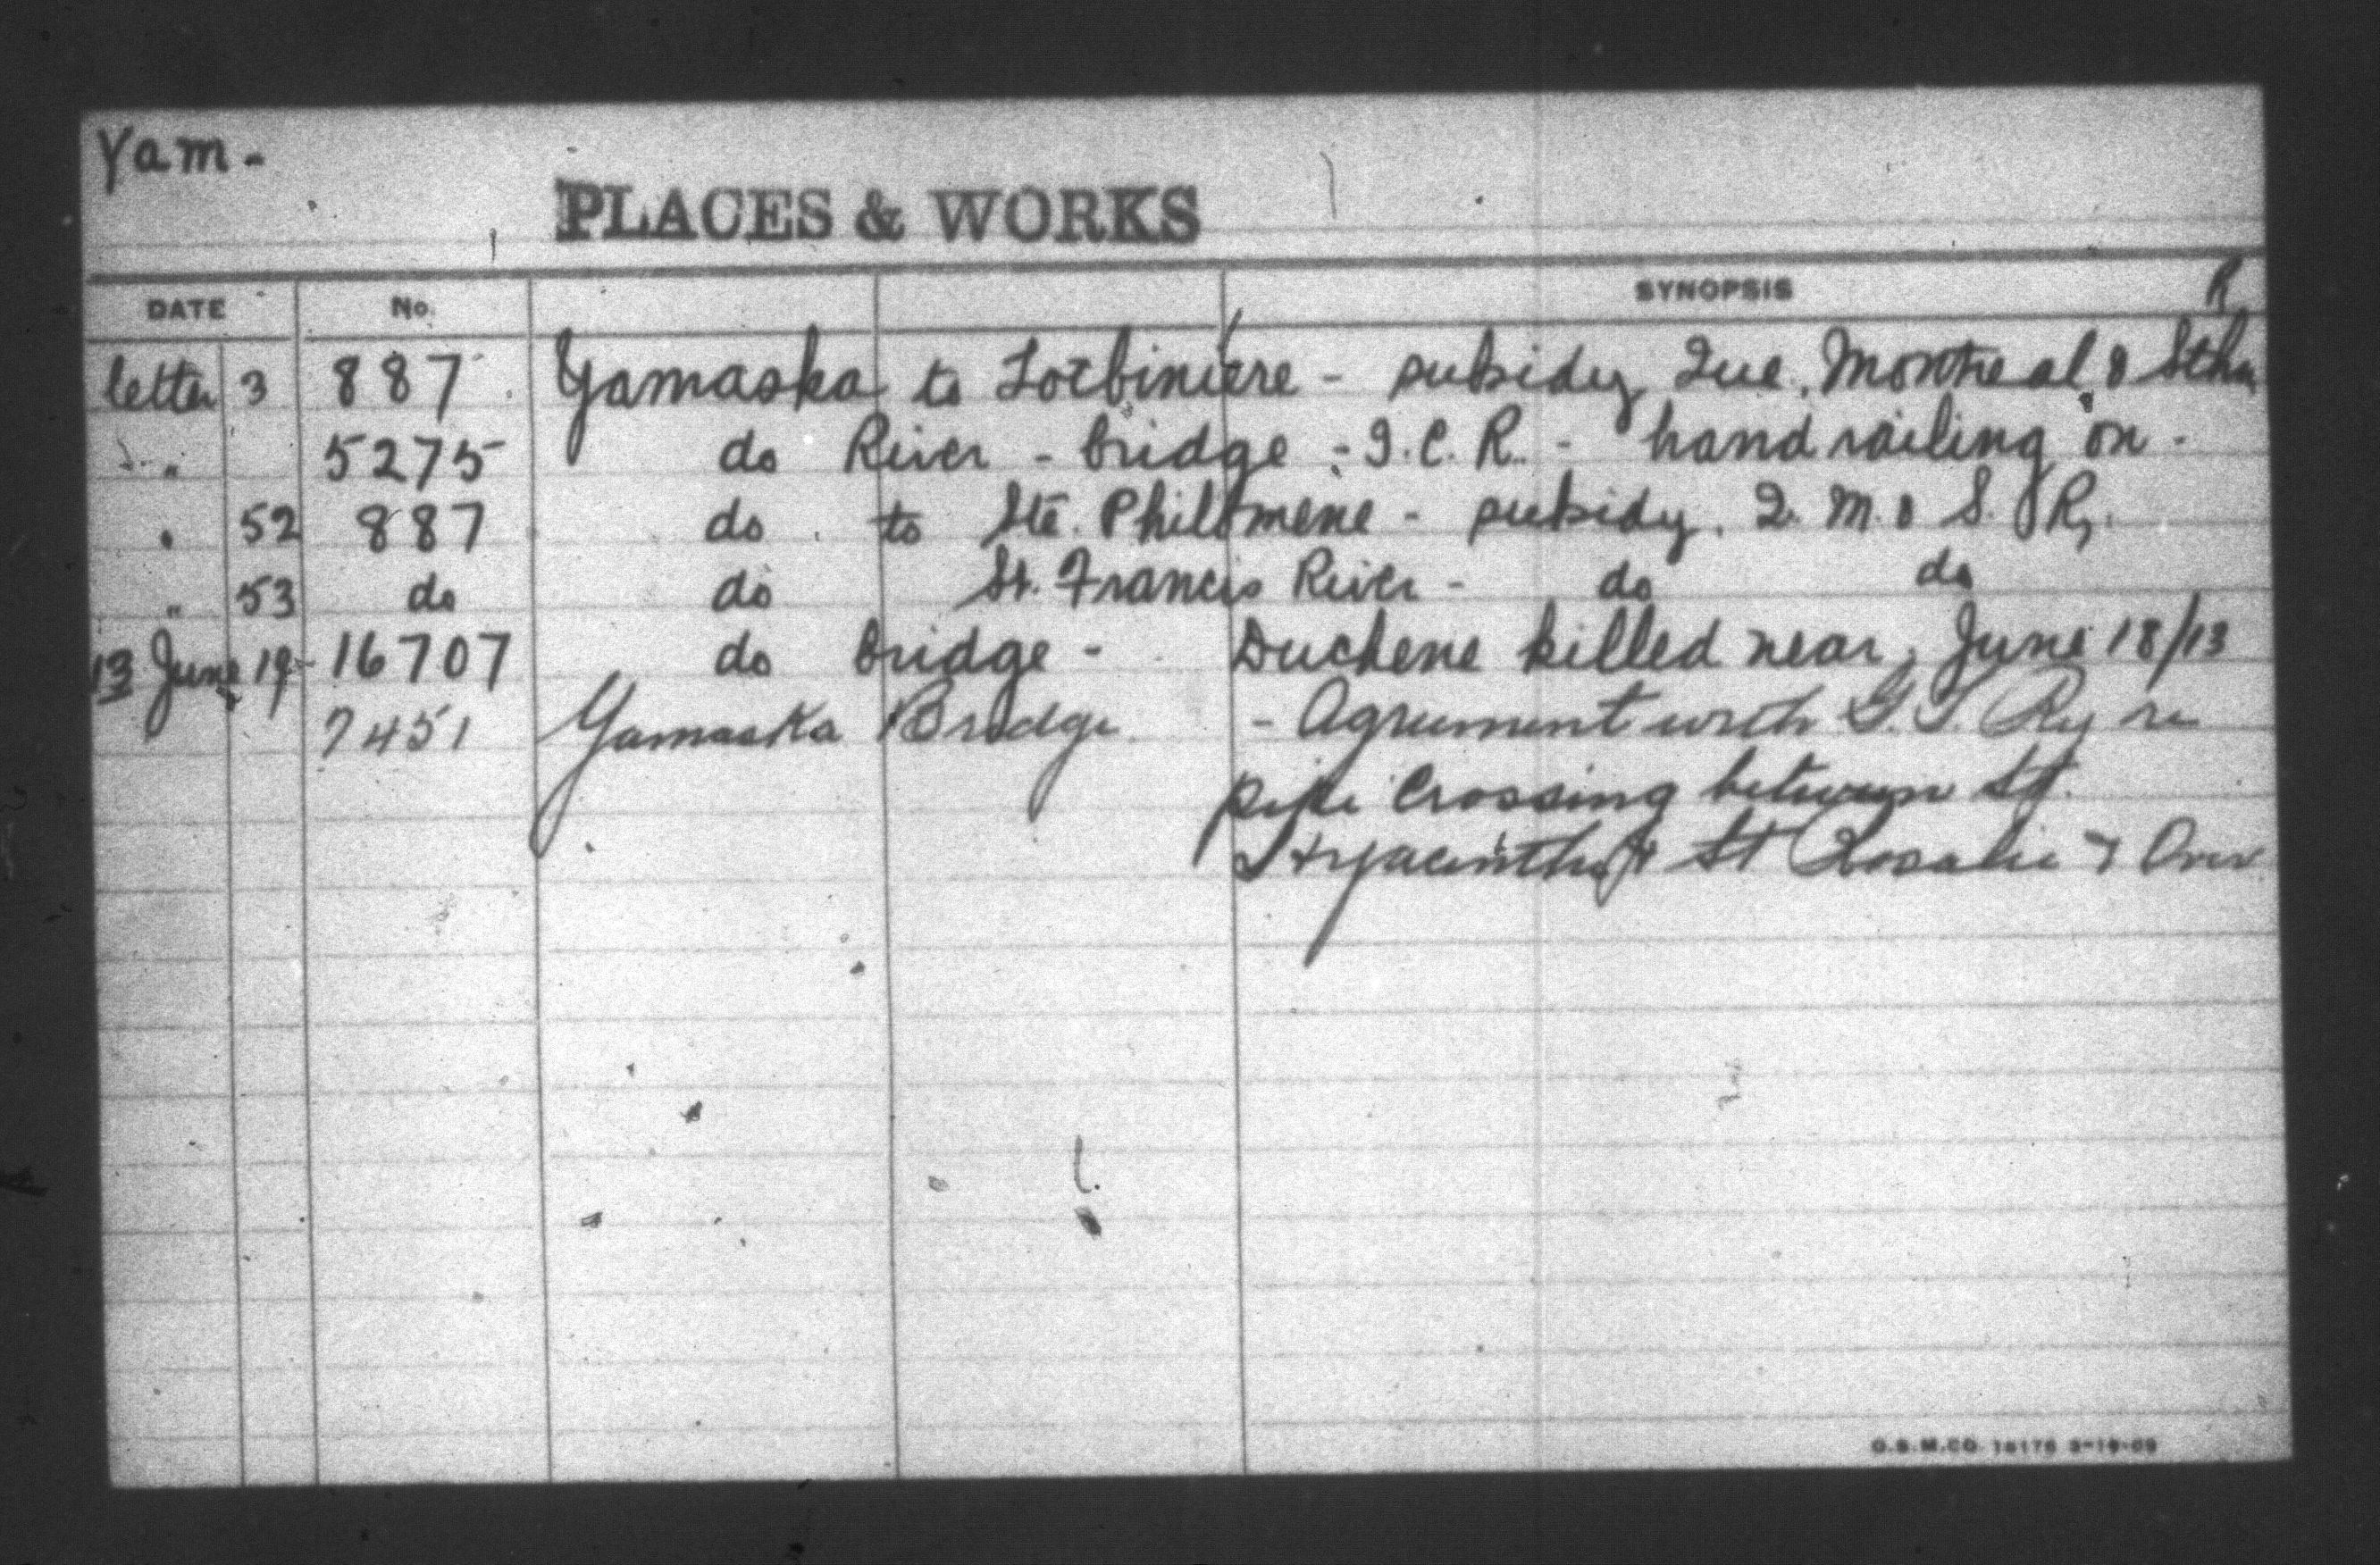 Yam-
PLACES & WORKS
DATE No. SYNOPSIS R
letter 3 887 Yamaska to Lotbinière - subsidy Que. Montreal & Sthn
" 5275 do River - bridge - I.C.R. - hand railing on -
" 52 887 do to Ste. Philomene - subsidy. Q. M. & S. Ry.
" 53 do do St. Francis River - do do
13 June 19 - 16707 do bridge - Duchene killed near, June 18/13
7451 Yamaska Bridge - Agreement with G.T. Ry re
pipe Crossing between St.
Hyacinthe & St Rosalie & Over
O.S.M.CO. 15176 3-19-09